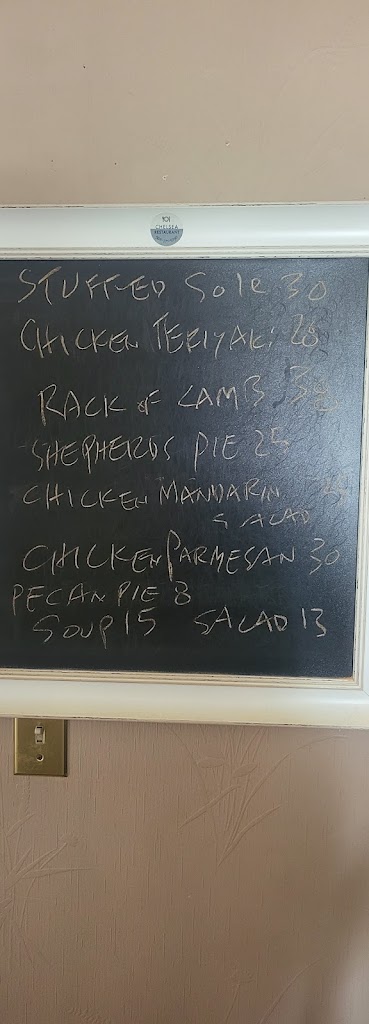 101
CHELSEA
RESTAURANT
STUFFED SOLE 30
CHICKEN TERIYAKI 28
RACK OF LAMB
SHEPHERDS PIE 25
CHICKEN MANDARIN
SALAD
CHICKEN PARMESAN 30
PECAN PIE 8
SOUP 15 SALAD 13